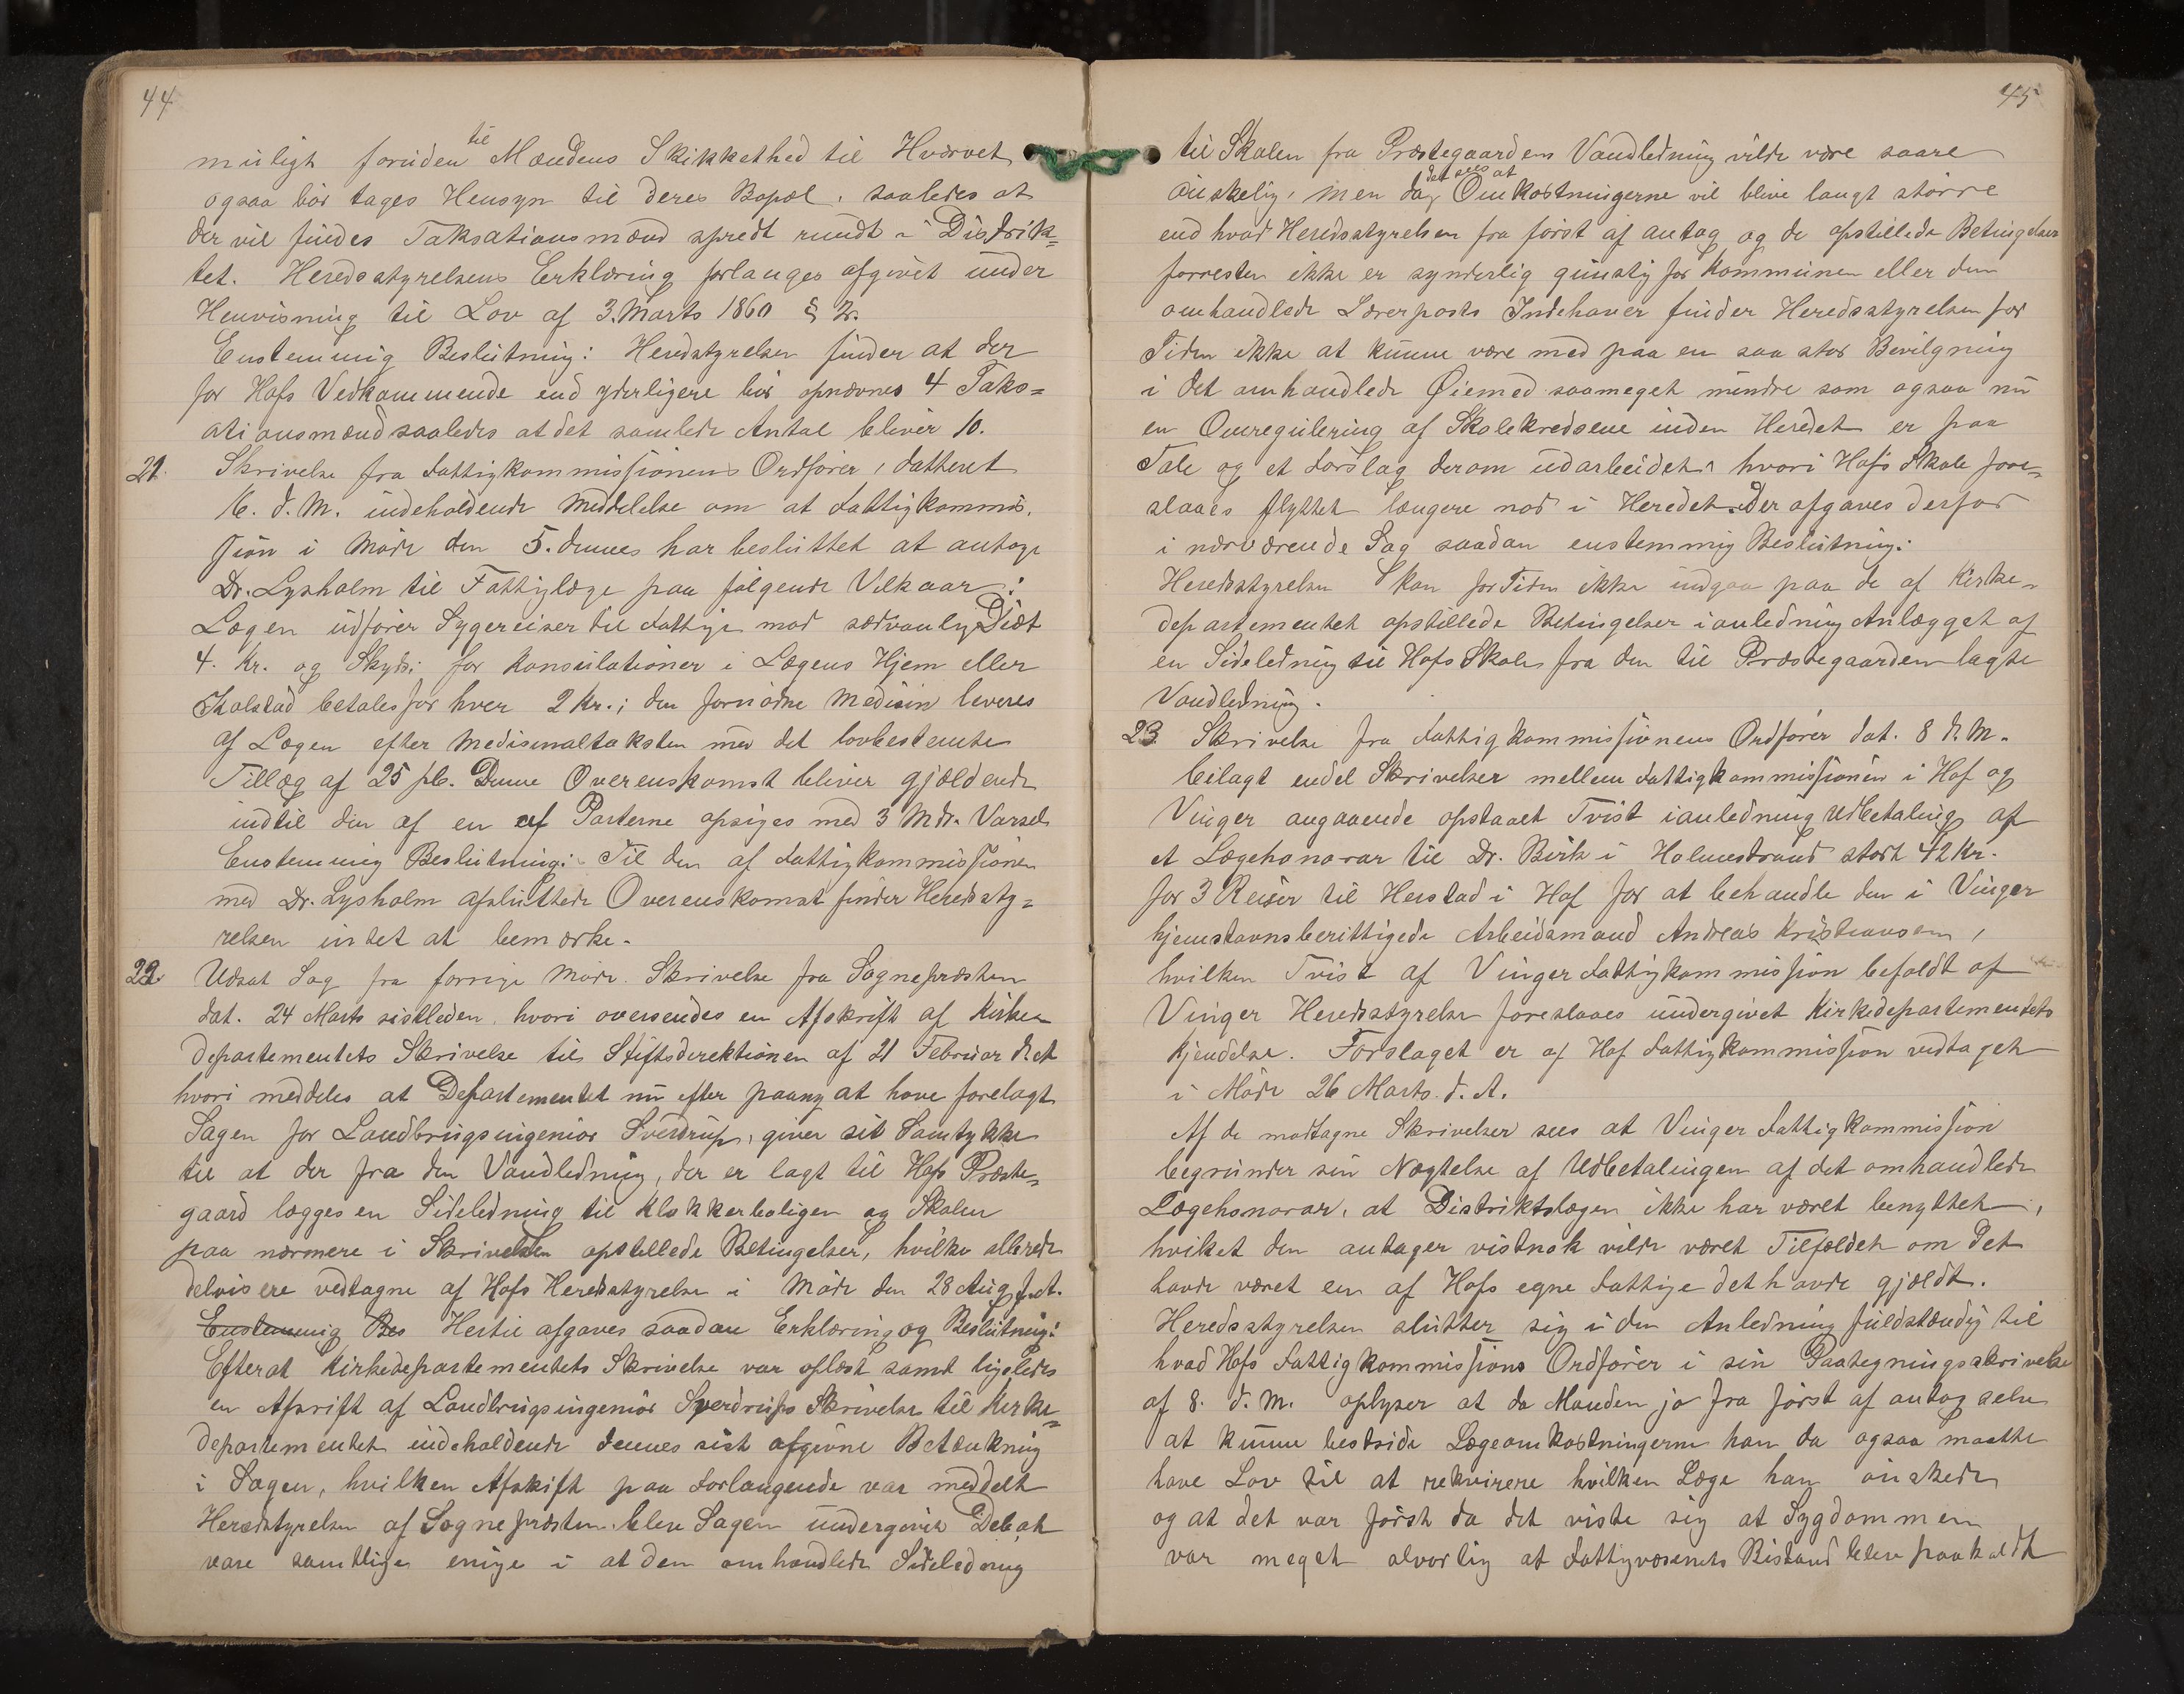 44
muligt foruden til Mændens Skikkethed til Hvervet
ogsaa bör tages Hensyn til deres Bopæl, saaledes at
der vil findes Taksationsmænd spredt rundt i Distrik=
tet. Heredsstyrelsens Erklæring forlanges afgivet under
Henvisning til Lov af 3. Marts 1860 § 2.
Enstemmig Beslutning: Heredstyrelsen finder at der
for Hofs Vedkommende end yderligere bör opnævnes 4 Taks=
ationsmænd saaledes at det samlede Antal bliver 10.
21. Skrivelse fra Fattigkommissionens Ordförer, datteret
6. d.M. indeholdende Meddelelse om at Fattigkommis.
sion i Möde den 5. dennes har besluttet at antage
Dr. Lysholm til Fattiglæge paa fölgende Vilkaar:
Lægen udförer Sygereiser til Fattige mod sædvanlig Diæt
4. Kr. og Skyds; for Konsulationer i Lægens Hjem eller
Kolstad betales for hver 2 Kr.; den fornödne Medisin leveres
af Lægen efter Medisinaltaksten med det lovbestemte
Tillæg af 25 pc. Denne Overenskomst bliver gjældende
indtil den af en af Parterne opsiges med 3 Mdr. Varsel
Enstemmig Beslutning: Til den af Fattigkommissionen
med Dr. Lysholm afsluttede Overenskomst finder Heredssty=
relsen intet at bemærke.
22. Udsat Sag fra forrige Möde. Skrivelse fra Sognepræsten
dat. 24 Marts sistleden, hvori oversendes en Afskrift af Kirke
departementets Skrivelse til Stiftsdirektionen af 21 Februar
hvori meddeles at Departementet nu efter paany at have forelagt
Sagen for Landbrugsingeniör Sverdrup, giver sit Samtykke
til at der fra den Vandledning, der er lagt til Hofs Præste=
gaard lægges en Sideledning til Klokkerboligen og Skolen
paa nærmere i Skrivelsen opstillede Betingelser, hvilke allerede
delvis ere vedtagne af Hofs Heredsstyrelse i Möde den 28 Aug f.A.
Enstemmig Bes Hertil afgaves saadan Erklæring og Beslutning:
Efterat Kirkedepartementets Skrivelse var oplæst samt ligeledes
en Afsrift af Landbrugsingeniör Sverdrups Skrivelse til Kirke=
departementet indeholdende dennes sist afgivne Betænkning
i Sagen, hvilken Afskift paa Forlangende var meddelt
Heredstyrelsen af Sognepræsten blev Sagen undergivet Debat
vare samtlige enige i at den omhandlede Sideledning
45
til Skolen fra Præstegaardens Vandledning vilde være saare
önskelig, men da det sees at Omkostningerne vil blive langt större
end hvad Heredsstyrelsen fra först af antog og de opstillede Betingelser
forresten ikke er synderlig gunstig for Kommunen eller den
omhandlede Lærerposts Indehaver finder Heredsstyrelsen for
Tiden ikke at kunne være med paa en saa stor Bevilgning
i det omhandlede Øiemed saameget mindre som ogsaa nu
en Omregulering af Skolekredsene inden Heredet er paa
Tale og et Forslag derom udarbeidet, hvori Hofs Skole fore=
slaaes flyttet længere nord i Heredet. Der afgaves derfor
i nærværende Sag saadan enstemmig Beslutning:
Heredsstyrelsen kan for Tiden ikke indgaa paa de af Kirke=
departementet opstillede Betingelser i anledning Anlægget af
en Sideledning til Hofs Skole fra den til Præstegaarden lagte
Vandledning.
23. Skrivelse fra Fattigkommissionens Ordförer dat. 8 d.M.
bilagt endel Skrivelser mellem Fattigkommissionen i Hof og
Vinger angaaende opstaaet Tvist ianledning Udbetaling af
et Lægehonorar til Dr. Birk i Holmestrand stort 42 Kr.
for 3 Reiser til Herstad i Hof for at behandle den i Vinger
hjemstavnsberittigede Arbeidsmand Andreas Kristiansen,
hvilken Tvist af Vinger Fattigkommission befaldt af
Vinger Heredsstyrelse foreslaaes undergivet Kirkedepartementets
Kjendelse. Forslaget er af Hof Fattigkommission vedtaget
i Möde 26 Marts. d.A.
Af de modtagne Skrivelser sees at Vinger Fattigkommission
begrunder sin Nægtelse af Udbetalingen af det omhandlede
Lægehonorar, at Distriktslægen ikke har været benyttet,
hvilket den antager vistnok vilde været Tilfældet om det
havde været en af Hofs egne Fattige det havde gjældt.
Heredsstyrelsen slutter sig i den Anledning fuldstændig til
hvad Hofs Fattigkommissions Ordförer i sin Paategningsskrivelse
af 8. d.M. oplyser at da Manden jo fra först af antog selv
at kunne bestride Lægeomkostningerne han da ogsaa maatte
have Lov til at rekvirere hvilken Læge han önskede
og at det var först da det viste sig at Sygdommen
var meget alvorlig at Fattigvæsenets Bistand blev paakaldt